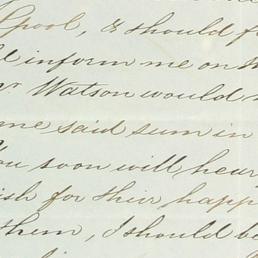 pool, & should f
inform me on
Mr Watson would
me said sum in
You soon will hear
ish for their happ
them, I should be